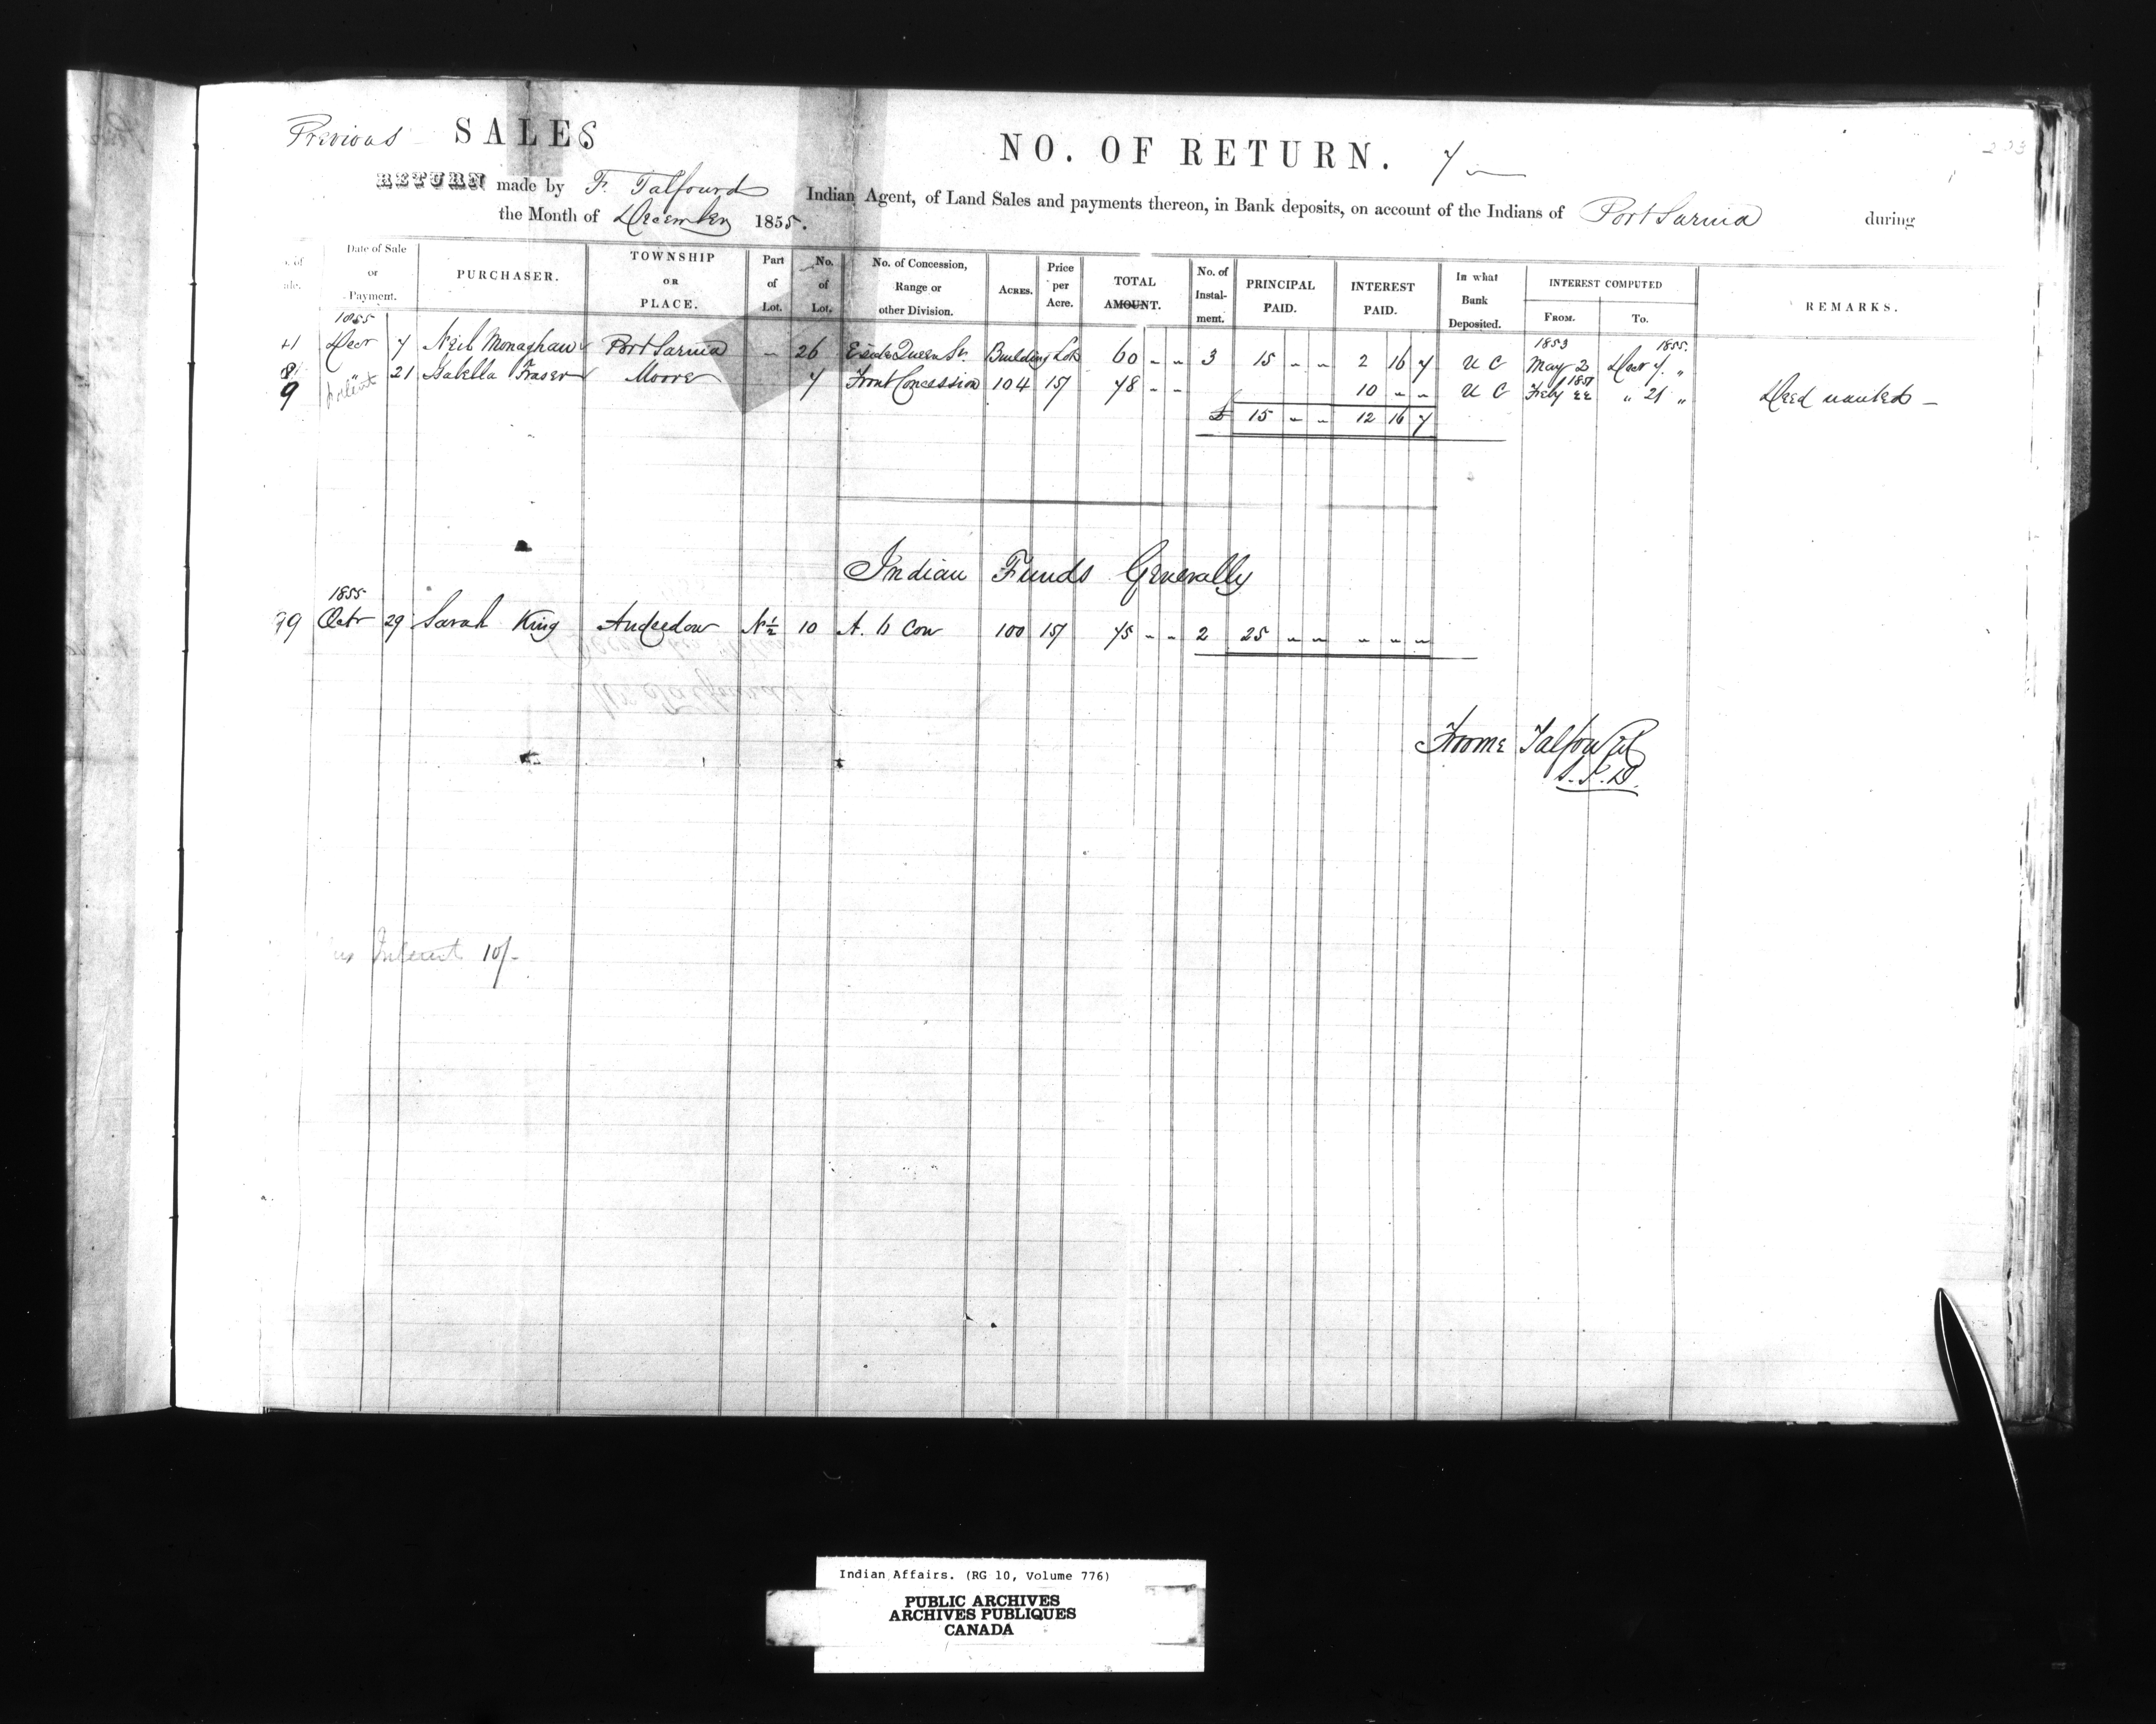 Previous SALES NO. OF RETURN. 7
RETURN made by F. Talfourd Indian Agent, of Land Sales and payments thereon, in Bank deposits, on account of the Indians of Port Sarnia during
the Month of December 1855.
Date of Sale or Payment. PURCHASER. TOWNSHIP OR PLACE. Part of Lot. No. of Lot. No. of Concession, Range or other Division. ACRES. Price per Acre. TOTAL AMOUNT. No. of Instal-ment. PRINCIPAL PAID. INTEREST PAID. In what Bank Deposited. INTEREST COMPUTED FROM. TO. REMARKS.
1855 1853 1855.
41 Decr 7 Neil Monaghan Port Sarnia - 26 E side Queen St. Building Lot 60 - - 3 15 - - 2 16 7 U C May 2 Decr 7. "
9 " 21 Isabella Fraser Moore 7 Front Concession 104 15/ 78 - - 10 - - U C Feby 22 1851 " 21 " Deed wanted -
£ 15 - - 12 16 7
Indian Funds Generally
1855
79 Octr 29 Sarah King Anderdon N ½ 10 A. b Con 100 15/ 75 - - 2 25 - - - - -
Froome Talfourd
S.I.D.
Interest 10/-
Indian Affairs. (RG 10, Volume 776)
PUBLIC ARCHIVES
ARCHIVES PUBLIQUES
CANADA